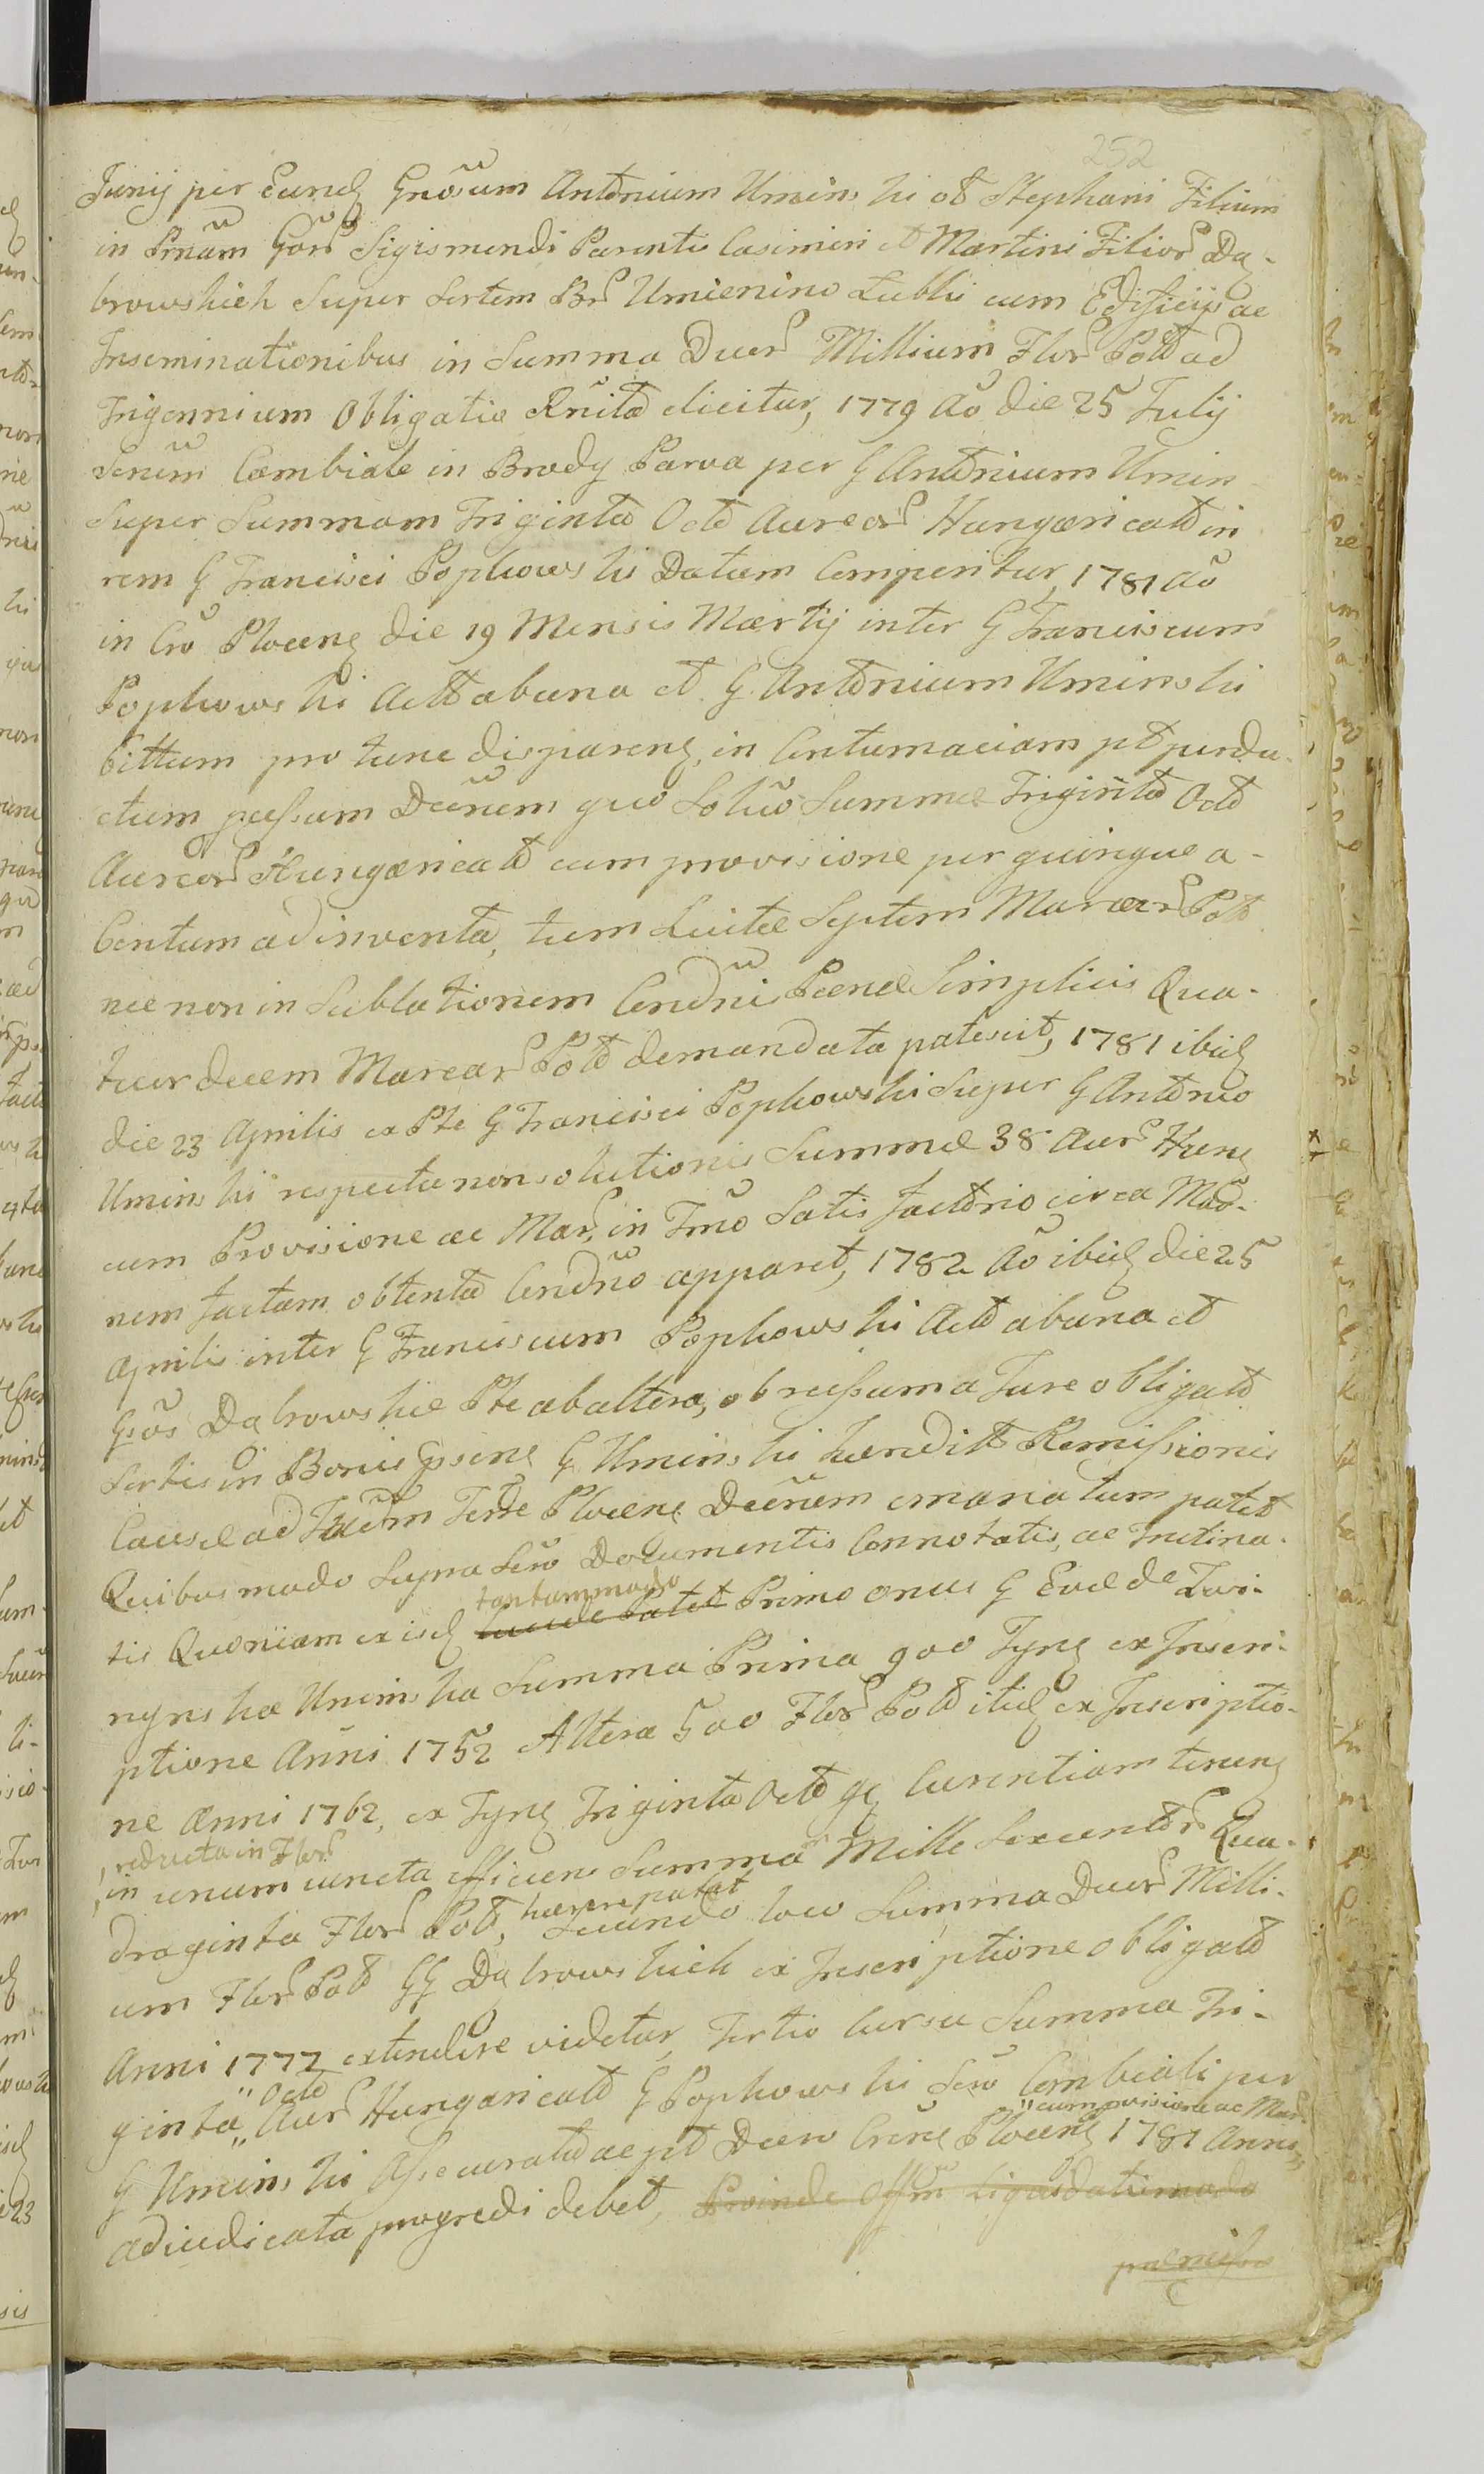 252
Junij per Eund Gnosum Antonium Uminski ol Stephani Filium
in Prnam Gor Sigismundi Parentis Casimiri et Martini Filior Dą-
browskich Super Sortem Br Umienino Łubki cum Edificijs ac
Inseminationibus in Summa Duor Millium Flor Pol ad
Trigennium Obligatio Rnita elicitur, 1779 Ao die 25 Julij
Cambiale in Brody Parva per G Antonium Umin
Super Summam Triginta Octo Aureor Hungaricał in
rem G Francisci Popkowski Datum Comperitur, 1781 Ao
in Cro Plocens die 19 Mensis Martij inter G Franciscum
Popkowski Act ab una et G. Antonium Uminski
Cittum pro tunc disparens, in Contumaciam pt perdu-
ctum passum Decnem quo Solvo Summæ Triginta Octo
Aureor Hungaricał cum provisione per quinque a-
Centum adinventa, tum Luitæ Septem Marcar Pol
nec non in Sublationem Condnis Pœnæ Simplicis Qua-
tuordecem Marcar Pol demandata patescit, 1781 ibid
die 23 Aprilis ex Pte G Francisci Popkowski Super G Antonio
Uminski respectu non solutionis Summæ 38 Aur Hung
cum Provisione ac Mar, in Trno Satis factorio circa Mao-
nem factam obtenta Condno apparet, 1782 Ao ibid die 25
Aprilis inter G Franciscum Popkowski Act ab una et
Gsos Dąbrowskie Pte ab altera, ob recessum a Jure obligat
Sortis in Bonis Gsens G Uminski hæredit Remissionis
Causæ ad Terræ Plocens Decnem emanatum patet
Quibus modo Supra Sero Documentis Connotatis, ac Tretina-
tis Quoniam ex isd tantummodo Primo onus G Evæ de Zwi-
nynska Uminska Summa Prima 900 Tyng ex Inscri-
ptione Anni 1752 Altera 500 Flor Pol itid ex Inscriptio-
ne Anni 1762, ex Tyng Triginta Octo gr Curentiam tenens
reducta in Flor
in unum cuncta efficiens Summa Mille Sexcentor Qua-
draginta Flor Pol, hærere patet Secundo loco Summa Duor Milli-
um Flor Pol GG Dąbrowskich ex Inscriptione obligat
Anni 1777 extendere videtur, Tertio Cursu Summa Tri-
ginta Octo Aur Hungaricał G Popkowski Sero Cambiali per
G Uminski Assecurata ac pt Decro Crens Plocens 1781 Anno cum provisione ac Mar
adiudicata progredi debet, Proinde Offm Ligasdatimodo
præmissa